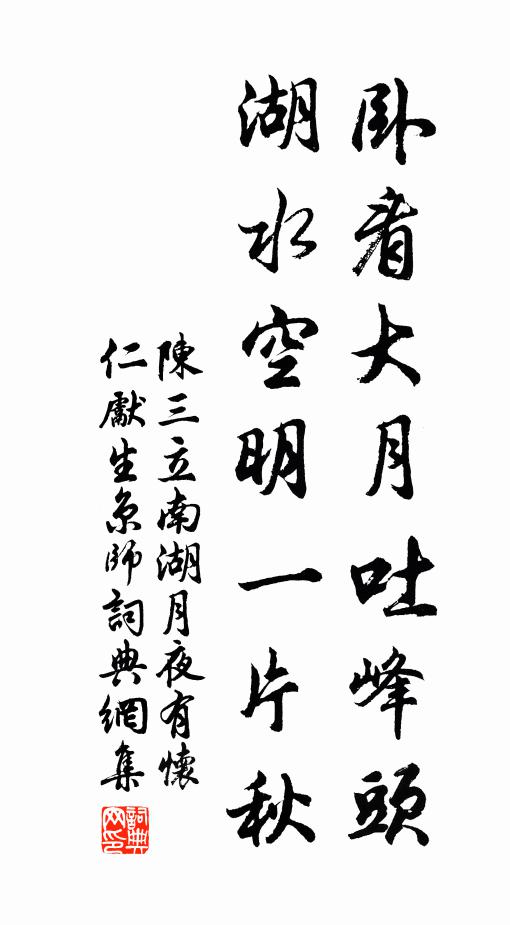 卧看大月吐峰頭
湖水空明一片秋
陳三立南湖月夜有懷
仁獻生京師詞典網集
詞典
网印